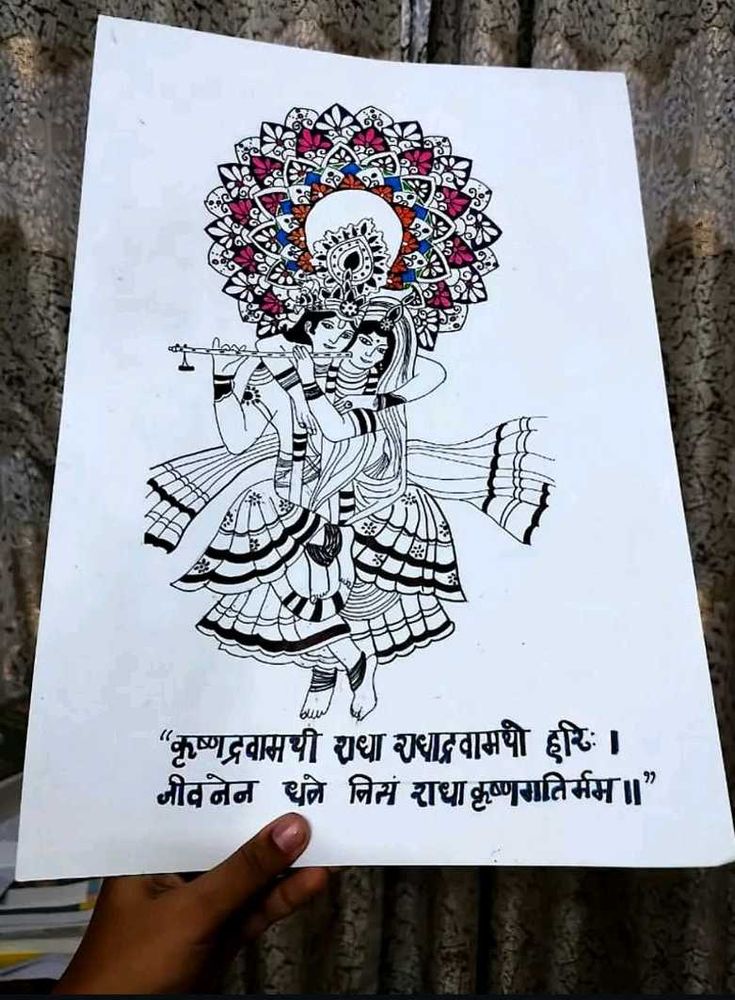 “कृष्णद्रवामयी राधा राधाद्रवामयी हरिः ।
जीवनेन धने नित्यं राधाकृष्णगतिर्मम ॥”